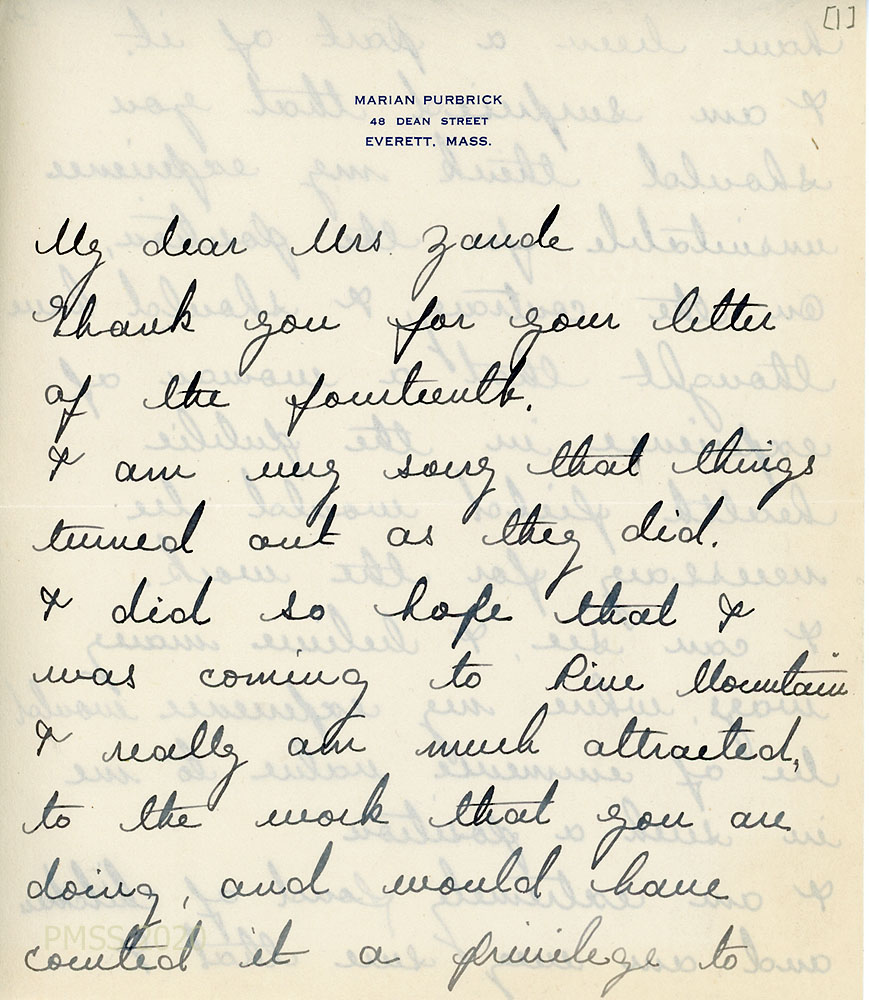 [1]
MARIAN PURBRICK
48 DEAN STREET
EVERETT, MASS.
My dear Mrs. Zande
Thank you for your letter
of the fourteenth.
I am very sorry that things
turned out as they did.
I did so hope that I
was coming to Pine Mountain
I really am much attracted,
to the work that you are
doing, and would have
counted it a privilege to
PMSS 2020